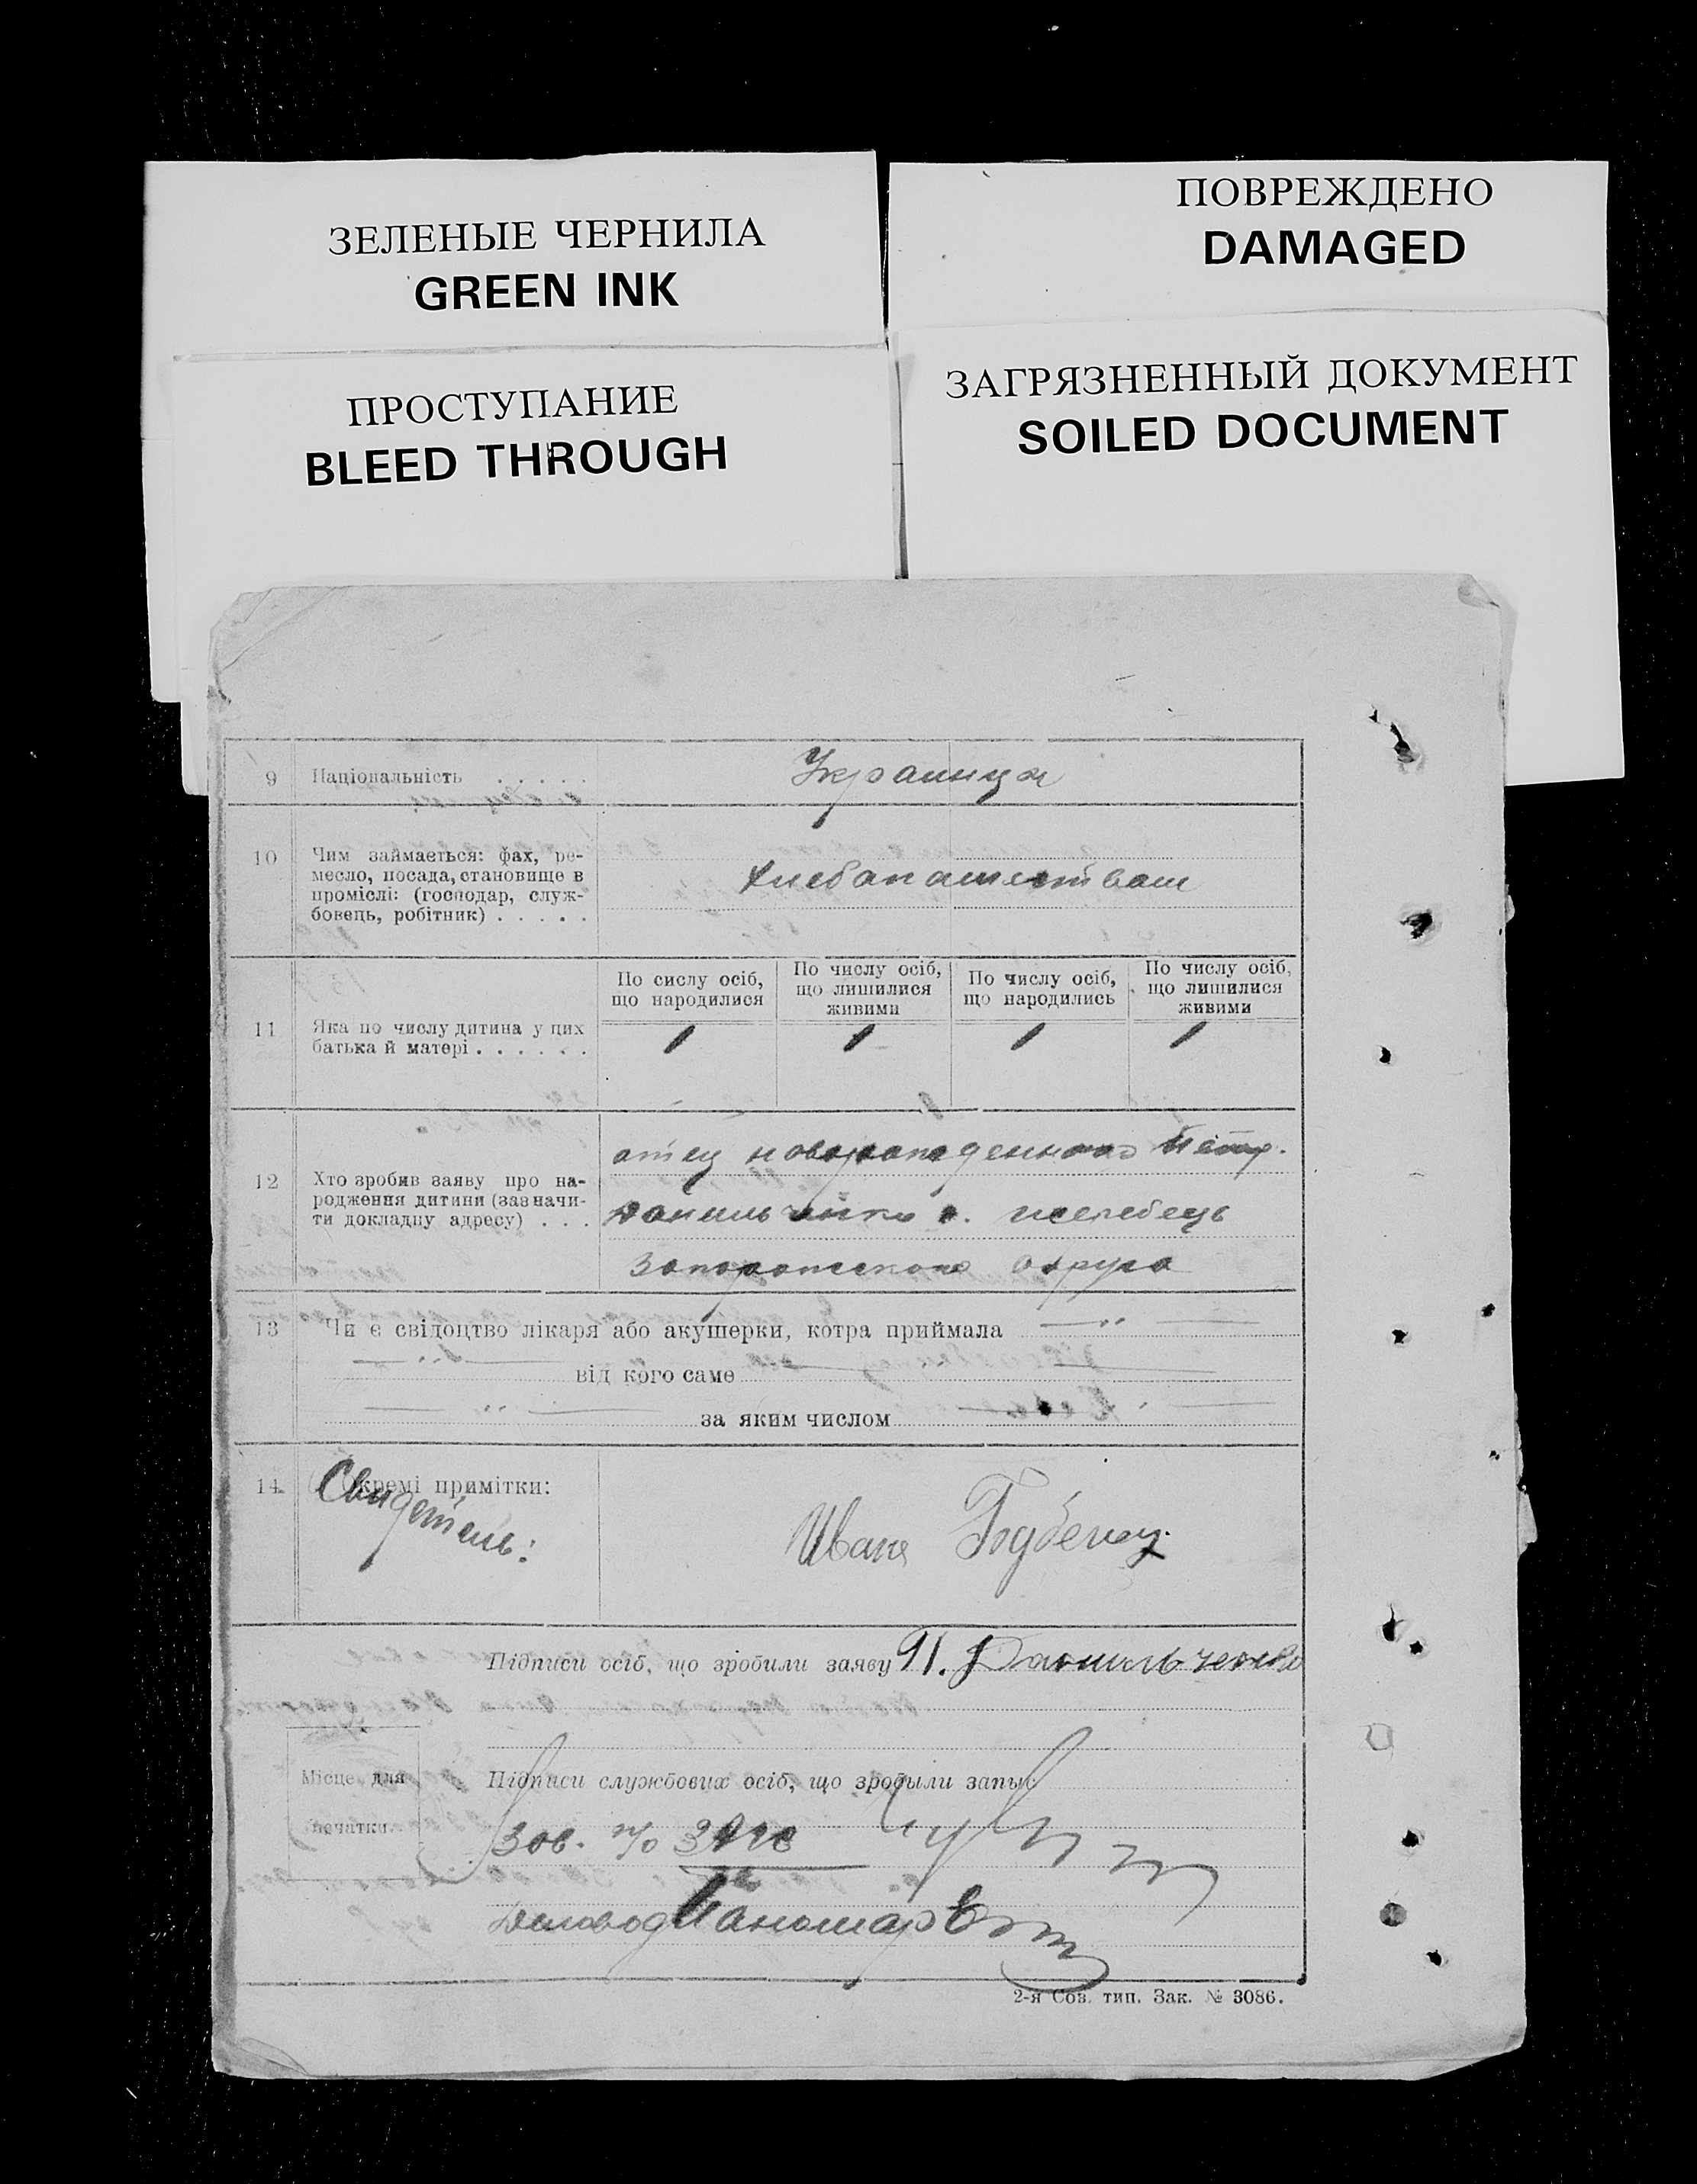 ЗЕЛЕНЫЕ ЧЕРНИЛА
GREEN INK
ПОВРЕЖДЕНО
DAMAGED
ПРОСТУПАНИЕ
BLEED THROUGH
ЗАГРЯЗНЕННЫЙ ДОКУМЕНТ
SOILED DOCUMENT
9 Національність . . . . .
Украинци
10 Чим займається: фах, ре-
месло, посада, становище в
проміслі: (господар, служ-
бовець, робітник) . . . . .
Хлебопашеством
11 Яка по числу дитина у цих
батька й матері . . . . . .
По сислу осіб,
що народилися
По числу осіб,
що лишилися
живими
По числу осіб,
що народились
По числу осіб,
що лишилися
живими
1 1 1 1
12 Хто зробив заяву про на-
родження дитини (зазначи-
ти докладну адресу) . . .
отец новорожденного Петр.
Данильченко с. жеребець
Запорожского округа
13 Чи є свідоцтво лікаря або акушерки, котра приймала — „ —
— „ — від кого саме — „ —
— „ — за яким числом — „ —
14 Окремі примітки:
Свидетель:
Иван
Підписи осіб, що зробили заяву П. Данильченко
Місце для
печатки
Підписи службових осіб, що зробыли запыс
Зав. п/о ЗАГС
Діловод Паномар
2-я Соз. тип. Зак. № 3086.